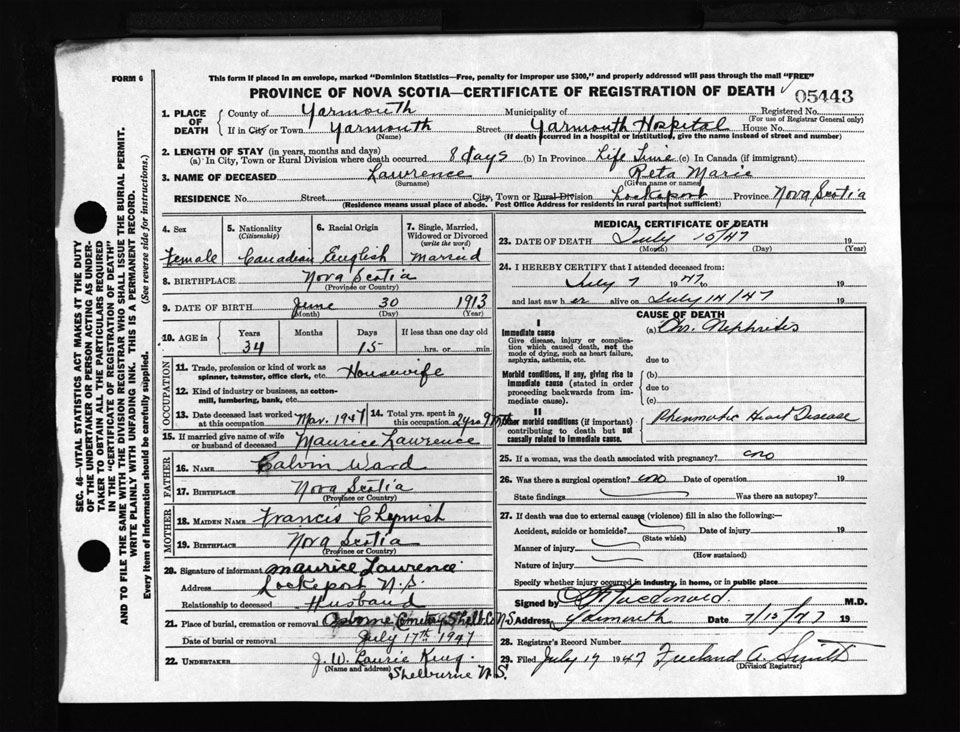 FORM 6
This form if placed in an envelope, marked "Dominion Statistics—Free, penalty for improper use $300," and properly addressed will pass through the mail "FREE"
PROVINCE OF NOVA SCOTIA—CERTIFICATE OF REGISTRATION OF DEATH
05443
1. PLACE OF DEATH County of Yarmouth Municipality of Registered No.
(For use of Registrar General only)
If in City or Town Yarmouth Street Yarmouth Hospital House No.
(Name) (If death occurred in a hospital or institution, give its name instead of street and number)
2. LENGTH OF STAY (in years, months and days)
(a) In City, Town or Rural Division where death occurred 8 days (b) In Province Life Time (c) In Canada (if immigrant)
3. NAME OF DECEASED Lawrence Reta Marie
(Surname) (Given name or names)
RESIDENCE No. Street City, Town or Rural Division Lockeport Province Nova Scotia
(Residence means usual place of abode. Post Office Address for residents in rural parts not sufficient)
4. Sex
Female
5. Nationality
(Citizenship)
Canadian
6. Racial Origin
English
7. Single, Married, Widowed or Divorced
(write the word)
Married
8. BIRTHPLACE Nova Scotia
(Province or Country)
9. DATE OF BIRTH June 30 1913
(Month) (Day) (Year)
10. AGE in Years Months Days If less than one day old
34 15 hrs. or min.
OCCUPATION
11. Trade, profession or kind of work as spinner, teamster, office clerk, etc. Housewife
12. Kind of industry or business, as cotton-mill, lumbering, bank, etc.
13. Date deceased last worked at this occupation Mar. 1947
14. Total yrs. spent in this occupation 2 yrs 9 mth
15. If married give name of wife or husband of deceased Maurice Lawrence
FATHER
16. NAME Calvin Ward
17. BIRTHPLACE Nova Scotia
(Province or Country)
MOTHER
18. MAIDEN NAME Francis Chymist
19. BIRTHPLACE Nova Scotia
(Province or Country)
20. Signature of informant Maurice Lawrence
Address Lockeport N.S.
Relationship to deceased Husband
21. Place of burial, cremation or removal Osborne Cemetery Shelb. Co. N.S.
Date of burial or removal July 17th 1947
22. UNDERTAKER J. W. Laurie King.
(Name and address) Shelburne N.S.
MEDICAL CERTIFICATE OF DEATH
23. DATE OF DEATH July 15/47 19
(Month) (Day)
24. I HEREBY CERTIFY that I attended deceased from:
July 7 1947 to 19
and last saw her alive on July 14/47 19
CAUSE OF DEATH
I
Immediate cause
Give disease, injury or complication which caused death, not the mode of dying, such as heart failure, asphyxia, asthenia, etc.
(a) Chr. Nephritis
due to
Morbid conditions, if any, giving rise to immediate cause (stated in order proceeding backwards from immediate cause).
(b)
due to
(c)
II
Other morbid conditions (if important) contributing to death but not causally related to immediate cause.
Rheumatic Heart Disease
25. If a woman, was the death associated with pregnancy? no
26. Was there a surgical operation? no Date of operation 19
State findings Was there an autopsy?
27. If death was due to external causes (violence) fill in also the following:—
Accident, suicide or homicide? Date of injury 19
(State which)
Manner of injury
(How sustained)
Nature of injury
Specify whether injury occurred in industry, in home, or in public place
Signed by Macdonald. M.D.
Address Yarmouth Date 7/15/47 19
28. Registrar's Record Number
29. Filed July 17 1947 Freeland A. Smith
(Division Registrar)
SEC. 46—VITAL STATISTICS ACT MAKES IT THE DUTY
OF THE UNDERTAKER OR PERSON ACTING AS UNDER-
TAKER TO OBTAIN ALL THE PARTICULARS REQUIRED
IN THE "CERTIFICATE OF REGISTRATION OF DEATH"
AND TO FILE THE SAME WITH THE DIVISION REGISTRAR WHO SHALL ISSUE THE BURIAL PERMIT.
WRITE PLAINLY WITH UNFADING INK. THIS IS A PERMANENT RECORD.
Every item of information should be carefully supplied. (See reverse side for instructions.)